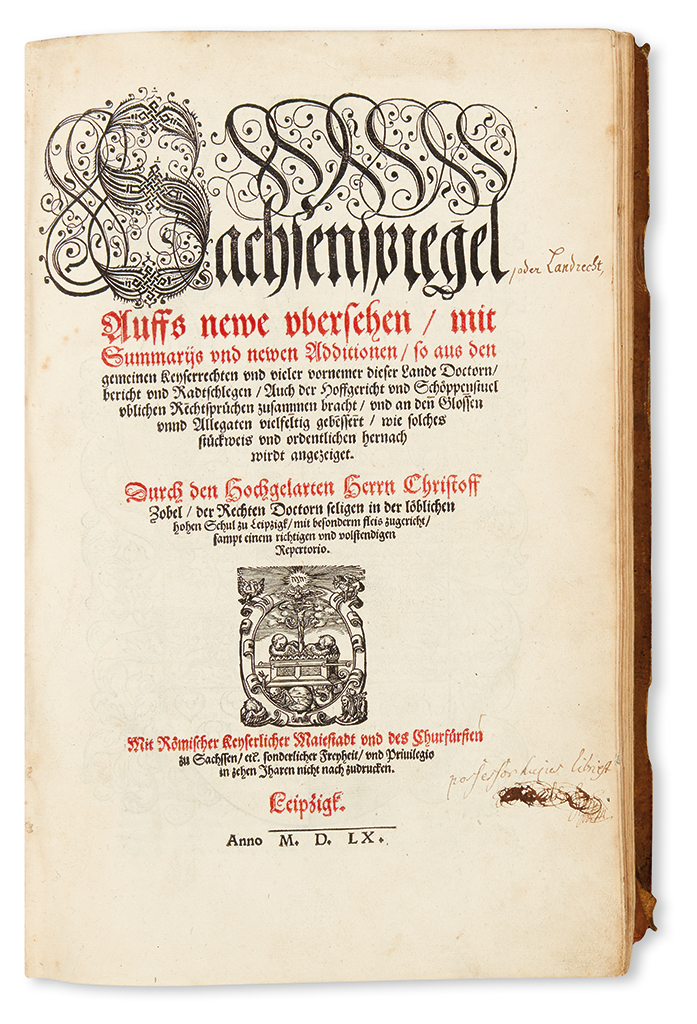 Sachsenspiegel
oder Landrecht,
Auffs newe vbersehen / mit
Summarijs vnd newen Additionen / so aus den
gemeinen Keyserrechten vnd vieler vornemer dieser Lande Doctorn /
bericht vnd Radtschlegen / Auch der Hoffgericht vnd Schöppenstuel
vblichen Rechtsprüchen zusammen bracht / vnd an den Glossen
vnnd Allegaten vielfeltig gebessert / wie solches
stückweis vnd ordentlichen hernach
wirdt angezeiget.
Durch den Hochgelarten Herrn Christoff
Zobel / der Rechten Doctorn seligen in der löblichen
hohen Schul zu Leipzigk / mit besonderm fleis zugericht /
sampt einem richtigen vnd volstendigen
Repertorio.
Mit Römischer Keyserlicher Maiestadt vnd des Churfürsten
zu Sachssen / etc. sonderlicher Freyheit / vnd Priuilegio
in zehen Jharen nicht nach zudrucken.
possessor hujus libri est
Leipzigk.
Anno M. D. LX.